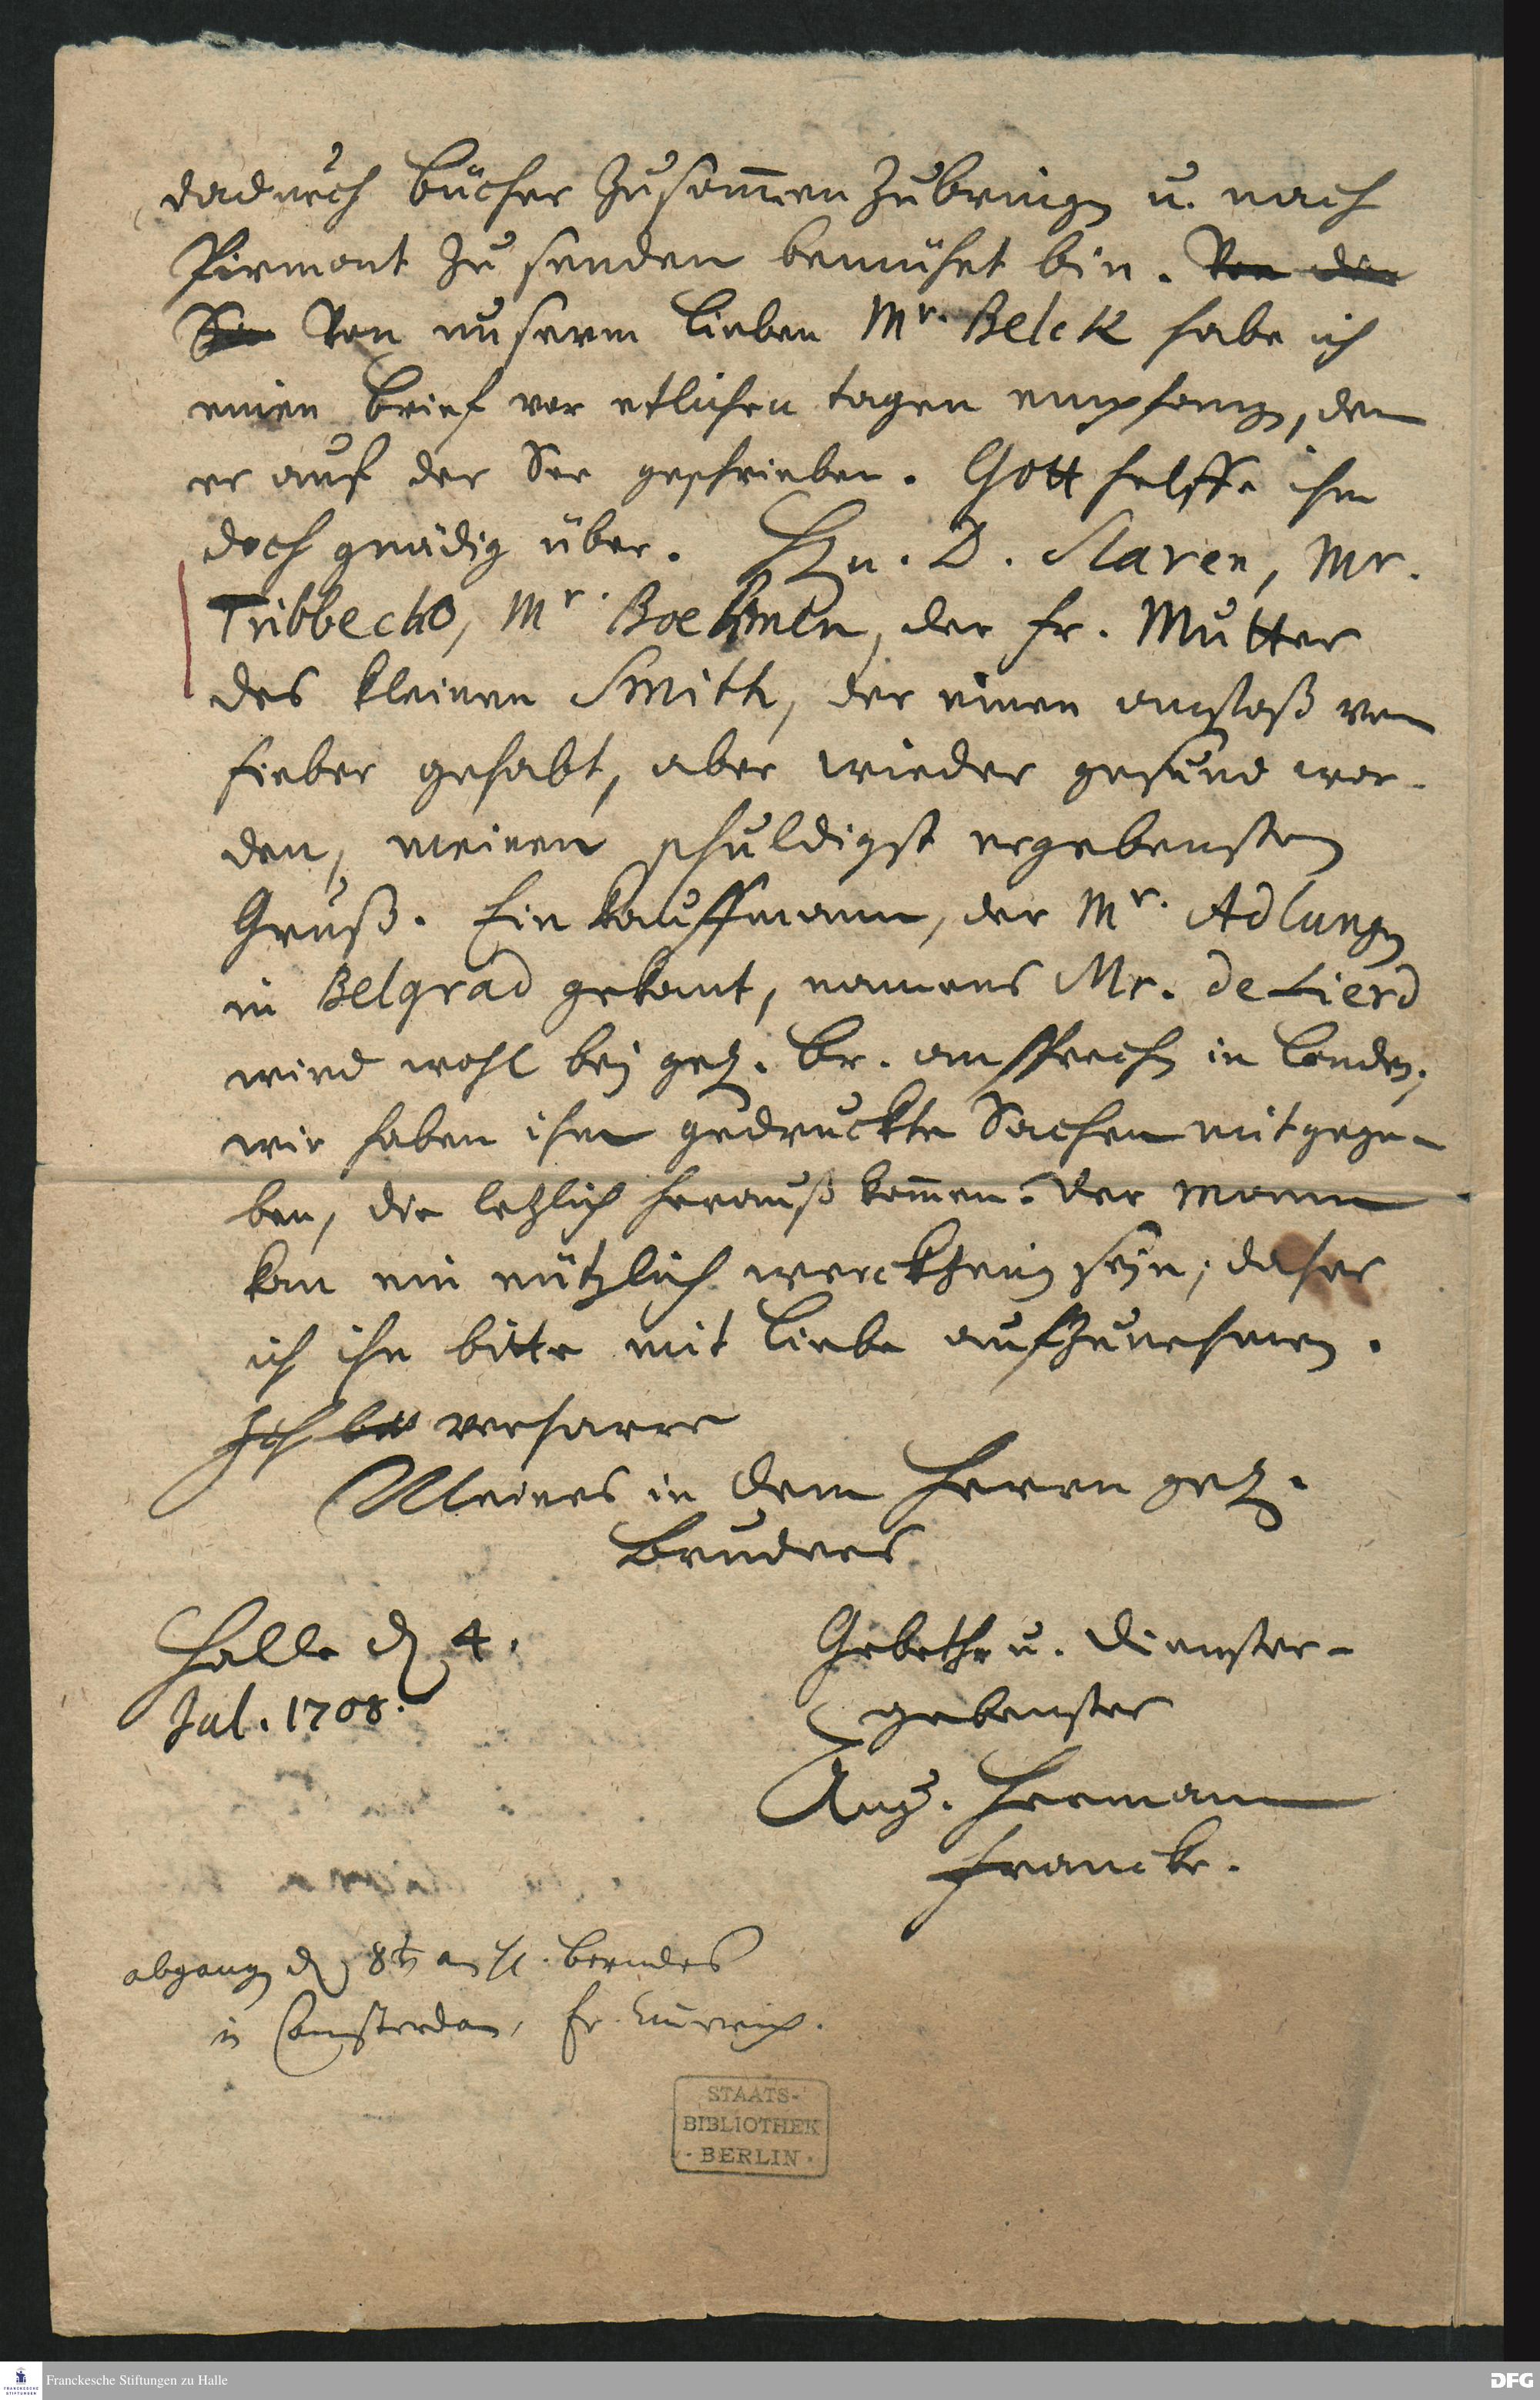 dadurch bücher zusammen zubringen u. nach
Pirmont zu senden bemühet bin. Von der
Von unserm lieben Mr. Belck habe ich
einen brief vor etlichen tagen empfangen, den
er auf der See geschrieben. Gott helffe ihm
doch gnädig über. Hrn. D. Slaren, Mr.
Tribbecko, Mr. Boehmen, der fr. Mutter
des kleinen Smith, der einen anstoß vom
fieber gehabt, aber wieder gesund wor-
den, meinen schuldigst ergebensten
Gruß. Ein kauffmann, der Mr. Adlungen
in Belgrad gekant, namens Mr. de Lierd
wird wohl bey gel. Br. ansprechen in London,
wir haben ihm gedruckte Sachen mitgege-
ben, die letzlich herauß kommen. Der Mann
kan ein nützlich werckzeug seyn; daher
ich ihn bitte mit liebe aufzunehmen.
Ich verharre
Meines in dem Herrn gel.
Bruders
Halle d 4.
Jul. 1708.
Gebeths u. dienster-
gebenster
Aug. Herman
Francke.
abgangen d 8t an H. berndes
in Amsterdam, fr.
STAATS-
BIBLIOTHEK
· BERLIN ·
FRANCKESCHE
STIFTUNGEN
Franckesche Stiftungen zu Halle
DFG